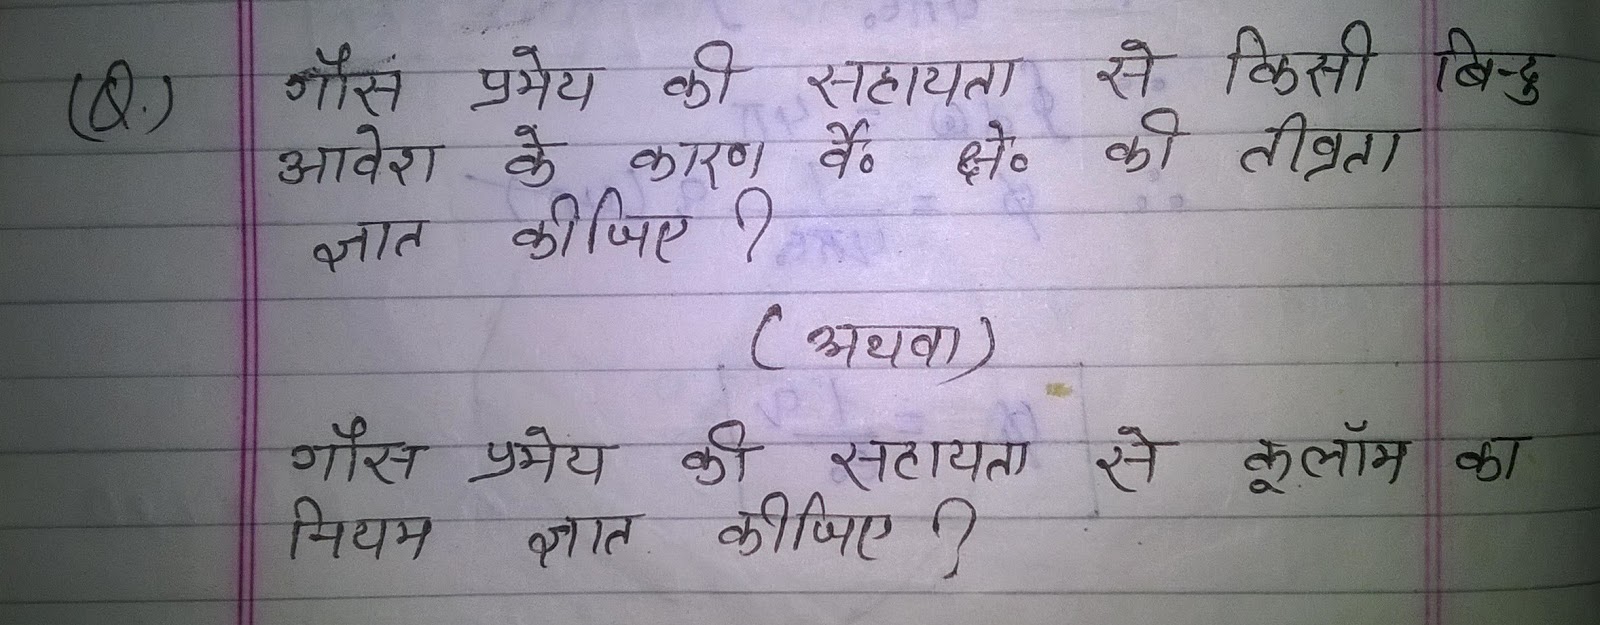 (Q.) गौस प्रमेय की सहायता से किसी बिन्दु
आवेश के कारण वै० क्षे० की तीव्रता
ज्ञात कीजिए ?
(अथवा)
गौस प्रमेय की सहायता से कूलॉम का
नियम ज्ञात कीजिए ?